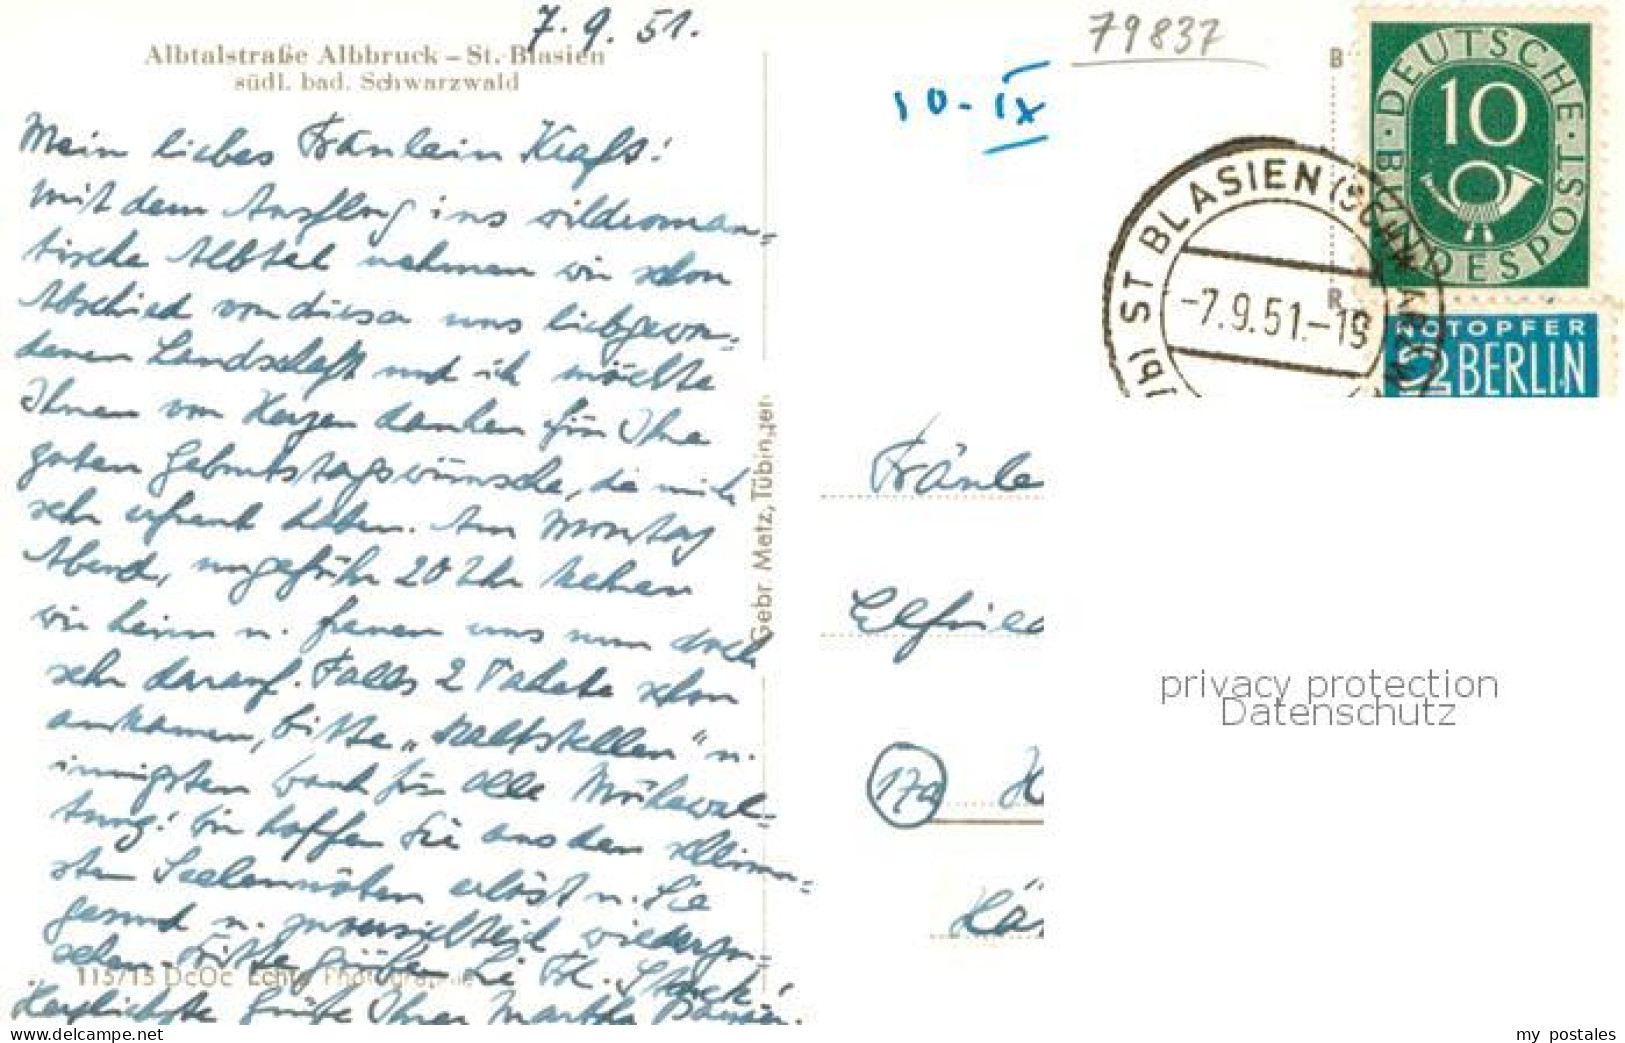 7. 9. 51.
Albtalstraße Albbruck – St. Blasien
südl. bad. Schwarzwald
Mein liebes Fräulein Kraft!
Mit dem Ausflug ins wildroman=
tische Albtal nehmen wir schon
Abschied von dieser uns liebgewor=
denen Landschaft und ich möchte
Ihnen von Herzen danken für Ihre
guten Geburtstagswünsche, die mich
sehr erfreut haben. Am Montag
Abend, ungefähr 20 Uhr kehren
wir heim u. freuen uns nun doch
sehr darauf. Falls 2 Pakete schon
ankamen, bitte „kaltstellen" u.
innigsten Dank für alle Mühewal=
tung! Wir hoffen Sie aus den schlimm=
sten Seelennöten erlöst u. Sie
gesund u. zuversichtlich wiederzu-
sehen. Bitte grüßen Sie Frl. Starck!
Herzlichste Grüße Ihrer Martha
115/15 DcOc Echte Photographie
Gebr. Metz, Tübingen
79837
10-IX
B
R
DEUTSCHE BUNDESPOST
10
ST BLASIEN (SCHWARZW
-7.9.51.-19
NOTOPFER
2 BERLIN
Fräule
Elfried
17a
Hä
privacy protection
Datenschutz
www.delcampe.net
my_postales